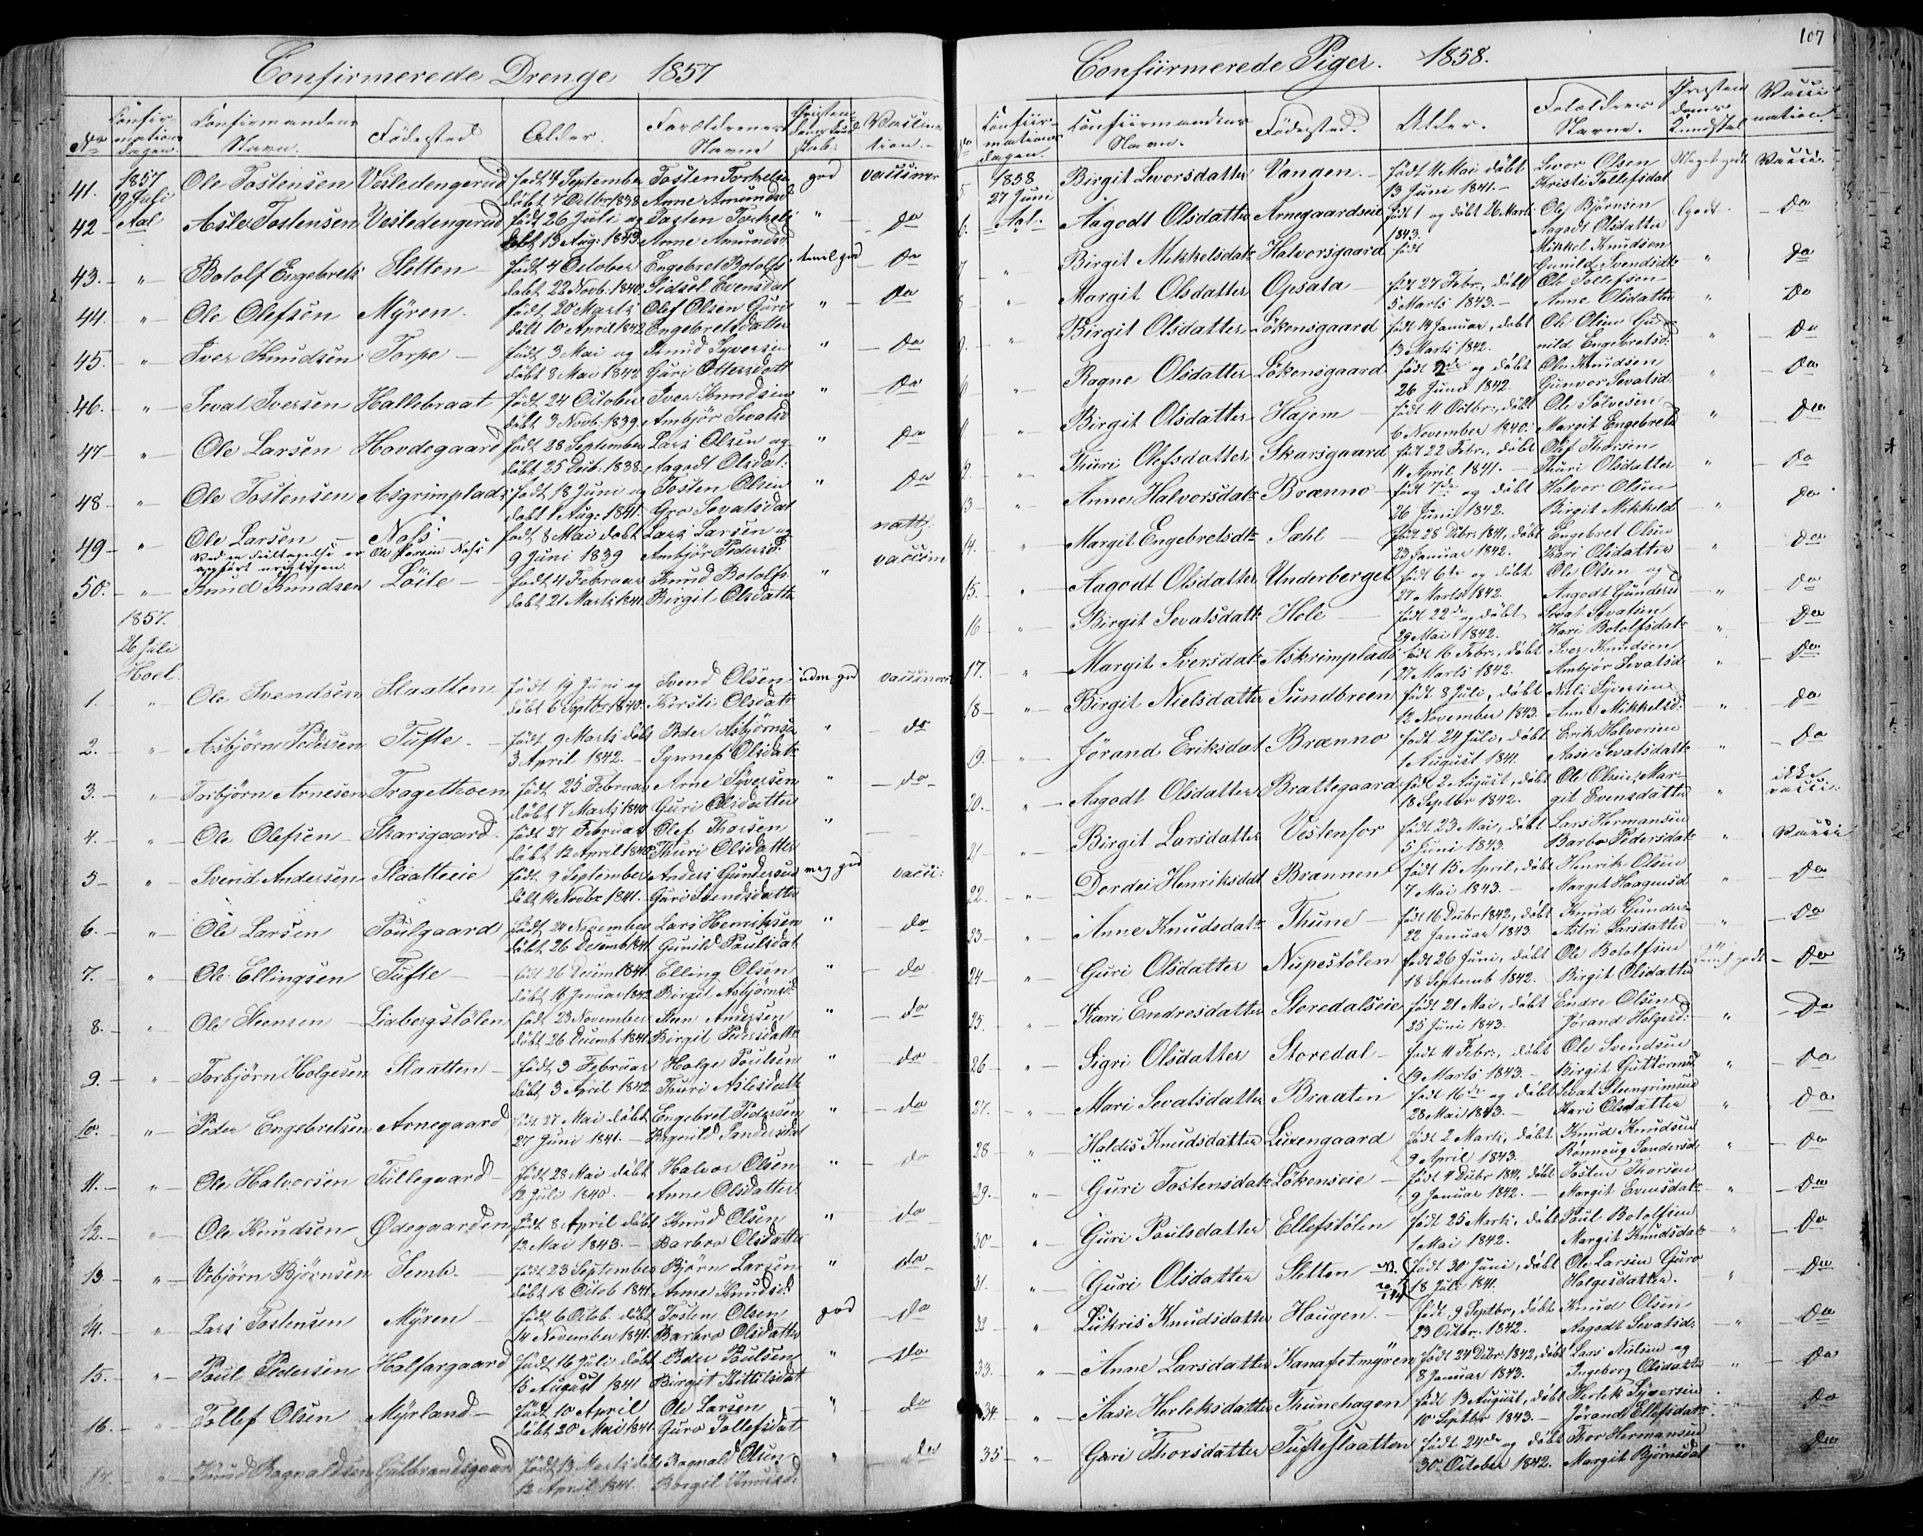 Confirmerede Drenge 1857
No
Confir-
mations
dagen.
Confirmandens
Navn.
Fødested
Alder.
Forældrenes
Navne
Vaccina-
tion.
41. 1857 19 Juli Ole Tostensen Vesledengerud født 4 September Tosten Torkels. god vaccineret
døbt 7 Octbr 1838 Anne Amundsd
42 Aal Asle Tostensen Vesledengerud født 26 Juli og Tosten Torkels " Do
døbt 13 Aug: 1843 Anne Amundsd.
43. " Botolf Engebrets. Sletten født 4 October Engebret Botolfs temel. god Do
døbt 22 Novb. 1840 Sidsel Evensdat
44. " Ole Olefsen Myren. født 20 Marts Olef Olsen Guri " Do
døbt 10 April 1842 Engebretsdatter
45. " Iver Knudsen Torpe født 3 Mai og Knud Syversen " Do
døbt 8 Mai 1842 Guri Ottersdatt
46. " Sevat Iversen Hallebraat født 24 October Iver Knudsen " Do
døbt 3 Novb. 1839 Ambjør Sevatsd
47 " Ole Larsen Hovdegaard født 28 September Lars Olsen og " Do
døbt 25 Decb. 1838 Aagodt Olsdat:
48 " Ole Tostensen Asgrimplads født 18 Juni og Tosten Olsen " Do
døbt 1 Aug: 1841 Gro Sevatsdat
49 " Ole Larsen Næss født 8 Mai døbt Lars Larsen og
Ole Larsen Næss 9 Juni 1839 Ambjør Pedersd: vaccin
50. " Knud Knudsen Løite født 4 Februar Knud Botolfs "
døbt 21 Marts 1841 Birgit Olsdatt
1857.
26 Juli
Hoel
1. " Ole Svendsen Slaatten født 19 Juni og Svend Olsen udm. god vaccineret
døbt 6 Septbr 1840 Kirsti Olsdat
2. " Asbjørn Pedersen Tufte født 9 Marts døbt Peder Asbjørns. " do
3 April 1842. Synnef Olsdat
3. " Torbjørn Arnesen Tragethoen født 25 Februar Arne Syversen " do
døbt 7 Marts 1840 Guri Olsdatter
4. " Ole Olefsen Skarsgaard. født 27 Februar Olef Thorsen "
døbt 12 April 1840 Thuri Olsdatter
5 " Svend Andersen Slaatteeie født 9 September Anders Gundersen meg. god vacci:
døbt 14 Novbr 1841. Guri Svendsdatter
6. " Ole Larsen Poulgaard født 24 November Lars Henriksen " do
døbt 26 Decemb 1841. Gunild Paulsdat
7. " Ole Ellingsen Tufte født 26 Decem 1841. Elling Olsen " do
døbt 16 Januar 1842 Birgit Asbjørnsd:
8. " Ole Steensen Liabergstølen født 23 November Sten Amersen " do
døbt 26 Decemb 1841. Birgit Pedersdatt
9. " Torbjørn Holgesen Slaatten født 3 Februar Holge Poulsen " do
døbt 3 April 1842 Thuri Aslesdatt
10. " Peder Engebretsen Arnegaard født 27 Mai døbt Engebret Pedersen " do
27 Juni 1841. Ragnild Sandersdat
11. " Ole Halvorsen Tullegaard født 28 Mai døbt Halvor Olsen " do
12 Juli 1840. Anne Olsdatter
12. " Ole Knudsen Ødegaarden født 8 April døbt Knud Olsen " do
12 Mai 1843. Barbro Olsdatter
13 " Vebjørn Bjørnsen Semb født 23 September Bjørn Larsen " do
døbt 18 Octob 1841 Anne Knudsd:
14. " Lars Tostensen Myren født 6 Octob. døbt Tosten Olsen god do
14 November 1841. Barbro Olsdatter
15. " Poul Pedersen Halfargaard født 16 Juli døbt Peder Poulsen " do
15 August 1841 Birgit Kittilsdat
16. " Tollef Olsen Myrland født 10 April Ole Larsen " do
døbt 20 Mai 1841 Guro Tollefsdat
17. " Knud Ragnaldsen Gulbrandsgaard født 13 Marts døbt Ragnald Olsen " do
12 April 1841. Birgit Knudsd
107
Confiirmerede Piger. 1858.
Confiir-
mations
dagen.
Confiirmandens
Navn.
Fødested.
Alder.
Forældrenes
Navne.
Christen
doms
Kundskab
Vacci
nation.
5. 1858 27 Juni Birgit Levorsdatter Vangen. født 4 Mai døbt Levor Olsen Meget godt Vacci.
13 Juni 1841. Kristi Tollefsdat
6. Aal. Aagodt Olsdatter Arnegaardseie født 1 og døbt 26 Marts Ole Bjørnsen Godt. Do
1843. Aagodt Olsdatter
7 " Birgit Mikkelsdat Halvorsgaard født Mikkel Knudsen " Do
Gunild Svendsdt
8 " Margit Olsdatter Opsata født 27 Febr., døbt Ole Tollefsen " Do
5 Marts 1843. Anne Olsdatter
9. " Birgit Olsdatter Løkensgaard født 14 Januar, døbt Ole Olsen Gu- " Do
13 Marts 1842. nild Engebretsd.
" Ragne Olsdatter Løkensgaard født 2de og døbt Ole Knudsen " Do
26 Juni 1842 Gunvor Sevatsd.
" Birgit Olsdatter Hajem født 11 Octbr., døbt Ole Sølvesen " Do
6 November 1840. Margit Engebretd
12. " Thuri Olefsdatter Skarsgaard født 22 Febr., døbt Olef Thorsen " Do
11 April 1841. Thuri Olsdatter
13 " Anne Halvorsdat Brænno født 7de og døbt Halvor Olsen " Do
26 Juni 1842. Birgit Mikkelsd
14. " Margit Engebretsdt Sæhl født 28 Decbr. 1841, døbt Engebret Olsen " Do
23 Januar 1842. Kari Olsdatter
15. " Aagodt Olsdatter Underberget født 6te og døbt Ole Olsen og " Do
27 Marts 1842. Aagodt Gunders
16 " Birgit Sevatsdatter Hole født 22de og døbt Sevat Sevatsen " Do
29 Mai 1842. Kari Botolfsdat
17. " Margit Iversdat Askrimplads født 16 Febr., døbt Iver Knudsen " Do
27 Marts 1842. Ambjør Sevatsd
18 " Birgit Nielsdatter Sundbreen født 8 Juli, døbt Niels Syversen " Do
12 November 1843. Anne Mikkelsd:
19. " Jørand Eriksdat Brænno født 24 Juli, døbt Erik Halvorsen " Do
1 August 1841. Aase Sevatsdatt
20. " Aagodt Olsdatter Brattegaard født 2 August, døbt Ole Olsen, Mar- " ikke vacci:
18 Septbr 1842. git Evensdatter
21 " Birgit Larsdatter Vestenfor født 23 Mai, døbt Lars Hermansen " Vacci
5 Juni 1843. Barbro Pedersdat
22. " Dordei Henriksdat Brænnen født 15 April, døbt Henrik Olsen " Do
7 Mai 1843. Margit Haagensd
23 " Anne Knudsdat Thune født 16 Decbr 1842, døbt Knud Gunders " Do
22 Januar 1843 Astri Larsdatter
24 " Guri Olsdatter Nupestølen født 26 Juni, døbt Ole Botolfsen godt Do
18 Septemb 1842. Birgit Olsdatter
25. " Kari Endresdatter Storedalseie født 21 Mai, døbt Endre Olsen " Do
25 Juni 1843. Jørand Holgesd:
26 " Sigri Olsdatter Storedal født 11 Febr., døbt Ole Svendsen " Do
19 Marts 1843. Birgit Guttormsd
27. " Mari Sevatsdatter Braaten født 16de og døbt Sevat Steingrimsen " Do
28 Mai 1843. Kari Olsdatter
28 " Haldis Knudsdatter Lusengaard født 2 Marts, døbt Knud Knudsen " Do
9 April 1843. Rønnoug Sandersd
29. " Guri Tostensdat Løkenseie født 4 Decbr 1841, døbt Tosten Thorsen " Do
9 Januar 1842. Margit Evensdat
30 " Guri Poulsdatter Ellefstølen født 25 Marts, døbt Poul Botolfsen " Do
1 Mai 1842. Margit Knudsdat
31. " Guri Olsdatter Sletten født 30 Juni, døbt Ole Larsen Guro " Do
18 Juli 1841. Holgesdatter.
32 " Lukris Knudsdatter Haugen. født 9 Septbr, døbt Knud Olsen " Do
23 Octbr. 1842. Aagodt Sevatsd:
33. " Anne Larsdatter Kanafetmyren født 24 Decbr. 1842, døbt Lars Nielsen og " Do
8 Januar 1843. Ingeborg Olsdatter
34. " Aase Herleksdatter Thunehagen født 13 August, døbt Herlek Syversen Do
10 Septbr 1843. Jørand Ellefsdat
35 " Guri Thorsdatter Tufteslaatten født 24de og døbt Thor Hermansen " Do
30 October 1842. Margit Bjørnsdat